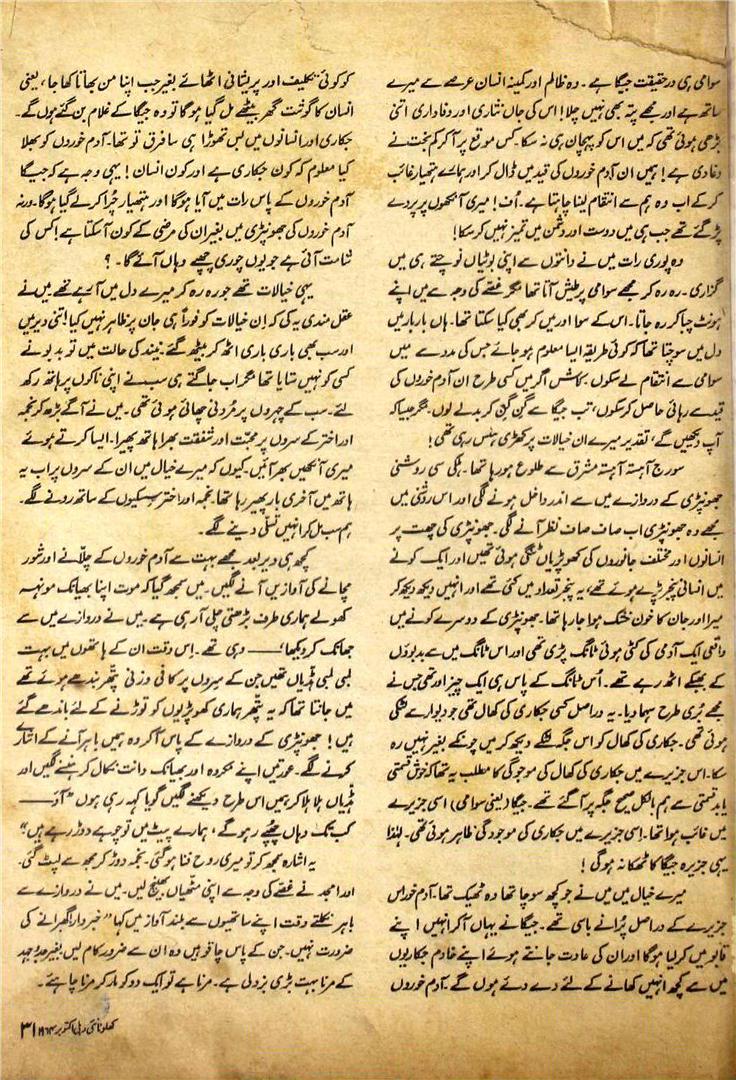 سوامی ہی درحقیقت جیگا ہے۔ وہ ظالم اور کمینہ انسان عرصے سے میرے
ساتھ ہے اور مجھے پتہ بھی نہیں چلا! اس کی جاں نثاری اور وفاداری اتنی
بڑھی ہوئی تھی کہ میں اس کو پہچان ہی نہ سکا۔ کس موقع پر آ کر کم بخت نے
دغا دی ہے! ہمیں ان آدم خوروں کی قید میں ڈال کر اور ہمارے ہتھیار غائب
کر کے اب وہ ہم سے انتقام لینا چاہتا ہے۔ اُف! میری آنکھوں پر پردے
پڑ گئے تھے جب ہی میں دوست اور دشمن میں تمیز نہیں کر سکا!
وہ پوری رات میں نے دانتوں سے اپنی بوٹیاں نوچتے ہی میں
گزاری۔ رہ رہ کر مجھے سوامی پر طیش آتا تھا مگر غصے کی وجہ سے میں اپنے
ہونٹ چبا کر رہ جاتا۔ اس کے سوا اور میں کر بھی کیا سکتا تھا۔ ہاں بار بار میں
دل میں سوچتا تھا کہ کوئی طریقہ ایسا معلوم ہو جائے جس کی مدد سے میں
سوامی سے انتقام لے سکوں۔ کاش اگر میں کسی طرح ان آدم خوروں کی
قید سے رہائی حاصل کر سکوں، تب جیگا سے گن گن کر بدلے لوں۔ مگر جیسا کہ
آپ دیکھیں گے، تقدیر میرے ان خیالات پر کھڑی ہنس رہی تھی!
سورج آہستہ آہستہ مشرق سے طلوع ہو رہا تھا۔ ہلکی سی روشنی
جھونپڑی کے دروازے میں سے اندر داخل ہونے لگی اور اس روشنی میں
مجھے وہ جھونپڑی اب صاف صاف نظر آنے لگی۔ جھونپڑی کی چھت پر
انسانوں اور مختلف جانوروں کی کھوپڑیاں ٹنگی ہوئی تھیں اور ایک کونے
میں انسانی پنجر پڑے ہوئے تھے، یہ پنجر تعداد میں کئی تھے اور انہیں دیکھ دیکھ کر
میرا اور جان کا خون خشک ہوا جا رہا تھا۔ جھونپڑی کے دوسرے کونے میں
واقعی ایک آدمی کی کٹی ہوئی ٹانگ پڑی تھی اور اس ٹانگ میں سے بدبوؤں
کے بھبکے اٹھ رہے تھے۔ اُس ٹانگ کے پاس ہی ایک چیز اور تھی جس نے
مجھے بُری طرح سہما دیا۔ یہ دراصل کسی جکاری کی کھال تھی جو دیوار سے ٹنگی
ہوئی تھی۔ جکاری کی کھال کو اس جگہ ٹنگے دیکھ کر میں چونکے بغیر نہیں رہ
سکا۔ اس جزیرے میں جکاری کی کھال کی موجودگی کا مطلب یہ تھا کہ خوش قسمتی
یا بدقسمتی سے ہم بالکل صحیح جگہ پر آ گئے تھے۔ جیگا (یعنی سوامی) اسی جزیرے
میں غائب ہوا تھا۔ اسی جزیرے میں جکاری کی موجودگی ظاہر ہوئی تھی۔ لہٰذا
یہی جزیرہ جیگا کا ٹھکانہ ہوگا!
میرے خیال میں میں نے جو کچھ سوچا تھا وہ ٹھیک تھا۔ آدم خور اس
جزیرے کے دراصل پُرانے باسی تھے۔ جیگا نے یہاں آ کر انہیں اپنے
قابو میں کر لیا ہوگا اور ان کی عادت جانتے ہوئے اپنے خادم جکاریوں
میں سے کچھ انہیں کھانے کے لئے دے دئے ہوں گے۔ آدم خوروں
کو کوئی تکلیف اور پریشانی اٹھائے بغیر جب اپنا من بھاتا کھاجا، یعنی
انسان کا گوشت گھر بیٹھے مل گیا ہوگا تو وہ جیگا کے غلام بن گئے ہوں گے۔
جکاری اور انسانوں میں بس تھوڑا ہی سا فرق تو تھا۔ آدم خوروں کو بھلا
کیا معلوم کہ کون جکاری ہے اور کون انسان! یہی وجہ ہے کہ جیگا
آدم خوروں کے پاس رات میں آیا ہوگا اور ہتھیار چُرا کر لے گیا ہوگا۔ ورنہ
آدم خوروں کی جھونپڑی میں بغیر ان کی مرضی کے کون آ سکتا ہے! کس کی
شامت آئی ہے جو یوں چوری چھپے وہاں آئے گا۔ ؟
یہی خیالات تھے جو رہ رہ کر میرے دل میں آ رہے تھے میں نے
عقل مندی یہ کی کہ اِن خیالات کو فوراً ہی جان پر ظاہر نہیں کیا! اتنی دیر میں
اور سب بھی باری باری اٹھ کر بیٹھ گئے۔ نیند کی حالت میں تو بدبو نے
کسی کو نہیں ستایا تھا مگر اب جاگتے ہی سب نے اپنی ناکوں پر ہاتھ رکھ
لئے۔ سب کے چہروں پر مُردنی چھائی ہوئی تھی۔ میں نے آگے بڑھ کر نجمہ
اور اختر کے سروں پر محبت اور شفقت بھرا ہاتھ پھیرا۔ ایسا کرتے ہوئے
میری آنکھیں بھر آئیں کیوں کہ میرے خیال میں ان کے سروں پر اب یہ
ہاتھ میں آخری بار پھیر رہا تھا۔ نجمہ اور اختر سسکیوں کے ساتھ رونے لگے۔
ہم سب مل کر انہیں تسلّی دینے لگے۔
کچھ ہی دیر بعد مجھے بہت سے آدم خوروں کے چلّانے اور شور
مچانے کی آوازیں آنے لگیں۔ میں سمجھ گیا کہ موت اپنا بھیانک مونہہ
کھولے ہماری طرف بڑھتی چلی آ رہی ہے۔ میں نے دروازے میں سے
جھانک کر دیکھا، —— وہی تھے۔ اِس وقت ان کے ہاتھوں میں بہت
لمبی لمبی ہڈیاں تھیں جن کے سِروں پر کافی وزنی پتّھر بندھے ہوئے تھے
میں جانتا تھا کہ یہ پتّھر ہماری کھوپڑیوں کو توڑنے کے لئے باندھے گئے
ہیں! جھونپڑی کے دروازے کے پاس آ کر وہ ہمیں باہر آنے کے اشارے
کرنے لگے۔ عورتیں اپنے مکروہ اور بھیانک دانت نکال کر ہنسنے لگیں اور
ہڈیاں ہلا ہلا کر ہمیں اس طرح دیکھنے لگیں گویا کہہ رہی ہوں "آؤ ——
کب تک وہاں چھپے رہو گے، ہمارے پیٹ میں تو چوہے دوڑ رہے ہیں"
یہ اشارہ سمجھ کر تو میری روح فنا ہو گئی۔ نجمہ دوڑ کر مجھ سے لپٹ گئی۔
اور امجد نے غصّے کی وجہ سے اپنی مٹھیاں بھینچ لیں۔ میں نے دروازے سے
باہر نکلتے وقت اپنے ساتھیوں سے بلند آواز میں کہا "خبردار! گھبرانے کی
ضرورت نہیں۔ جن کے پاس چاقو ہیں وہ ان سے ضرور کام لیں۔ بغیر جدوجہد
کے مرنا بہت بڑی بزدلی ہے۔ مرنا ہے تو ایک دو کو مار کر مرنا چاہئے۔
کھلونا نئی دہلی اکتوبر ۱۹۶۴ء ۳۱